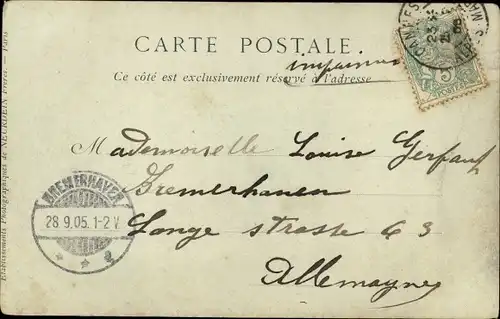 CARTE POSTALE.
imprimé
Ce côté est exclusivement réservé à l'adresse
Mademoiselle Louise Gerfaut
Bremerhaven
Lange strasse 63
Allemagne
BREMERHAVEN
28.9.05.1-2 V.
CANNES
5
Etablissements Photographiques de NEURDEIN Frères. — Paris